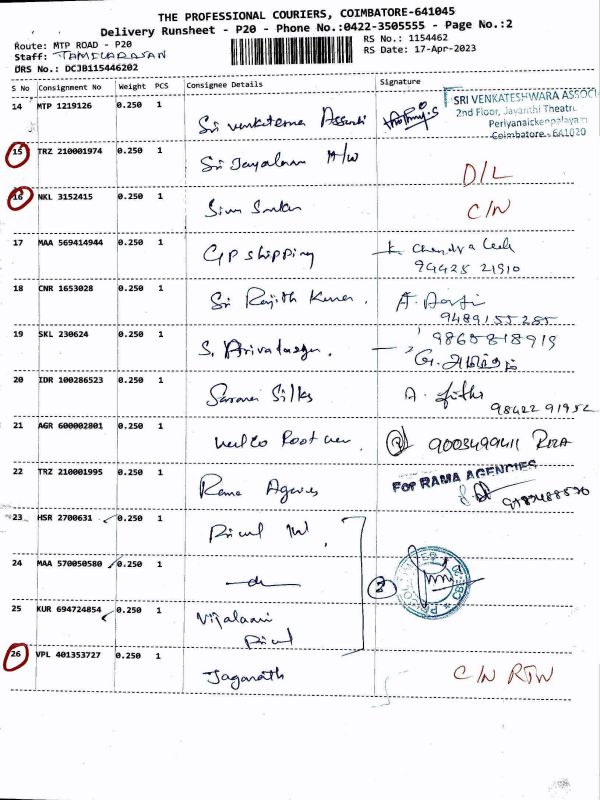 THE PROFESSIONAL COURIERS, COIMBATORE-641045
Delivery Runsheet - P20 - Phone No.:0422-3505555 - Page No.:2
Route: MTP ROAD - P20
RS No.: 1154462
Staff: TAMILARASAN
RS Date: 17-Apr-2023
DRS No.: DCJB115446202
S No Consignment No Weight PCS Consignee Details Signature
14 MTP 1219126 0.250 1 Sri Venkatesma
SRI VENKATESHWARA ASSOCI
2nd Floor, Jayanthi Theatre
Periyanaickenpalayam
Coimbatore - 641020
15 TRZ 210001974 0.250 1 Sri Jayalaxmi H/W D/L
16 NKL 3152415 0.250 1 C/N
17 MAA 569414944 0.250 1 GP Shipping
94425 21910
18 CNR 1653028 0.250 1 Sri Ranjith Kumar.
9489155285
19 SKL 230624 0.250 1 S.
9865818919
20 IDR 100286523 0.250 1 Silks A.
98422 91952
21 AGR 600002801 0.250 1 9003499411
22 TRZ 210001995 0.250 1 Rama Agencies
For RAMA AGENCIES
23 HSR 2700631 0.250 1
24 MAA 570050580 0.250 1
25 KUR 694724854 0.250 1
26 VPL 401353727 0.250 1 Jaganath C/N RTN